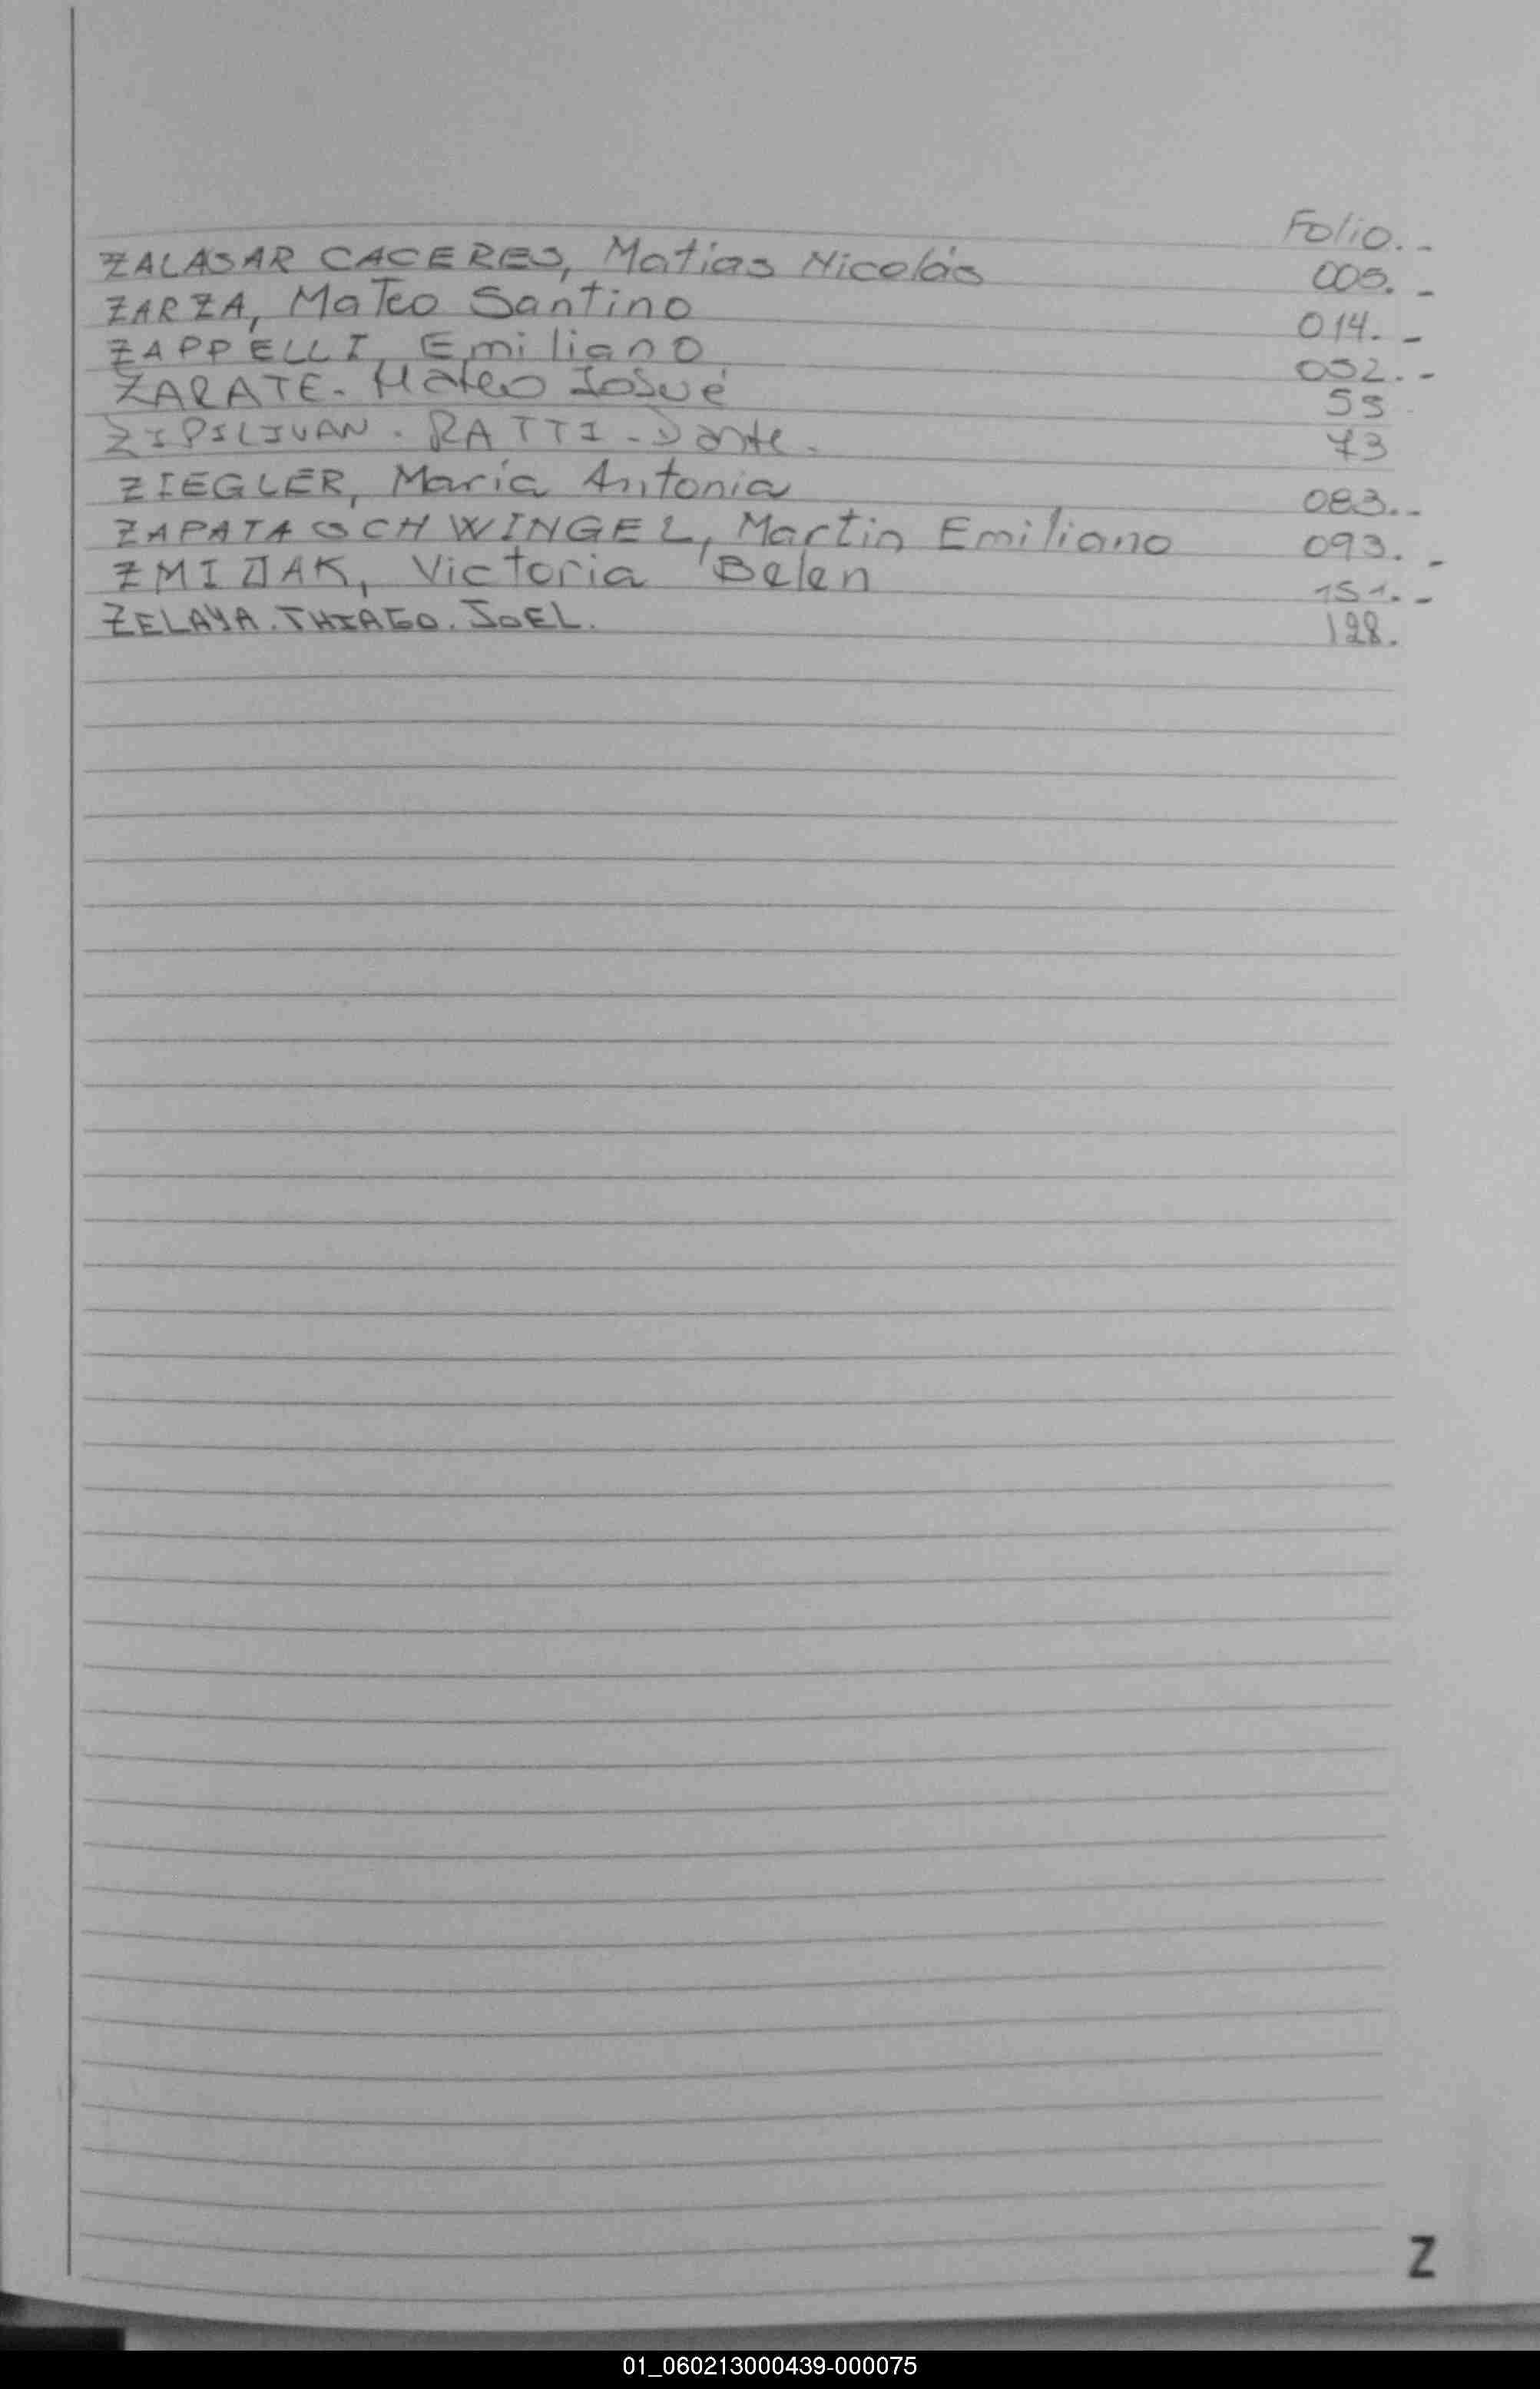 Folio.-
ZALASAR CACERES, Matías Nicolás 005.-
ZARZA, Mateo Santino 014.-
ZAPPELLI, Emiliano 052.-
ZARATE- Mateo Josué 55
RATTI - Dante. 73
ZIEGLER, María Antonia 083.-
ZAPATA SCHWINGEL, Martin Emiliano 093.-
ZMIJAK, Victoria Belen 151.-
ZELAYA. THIAGO. JOEL. 128.
Z
01_060213000439-000075